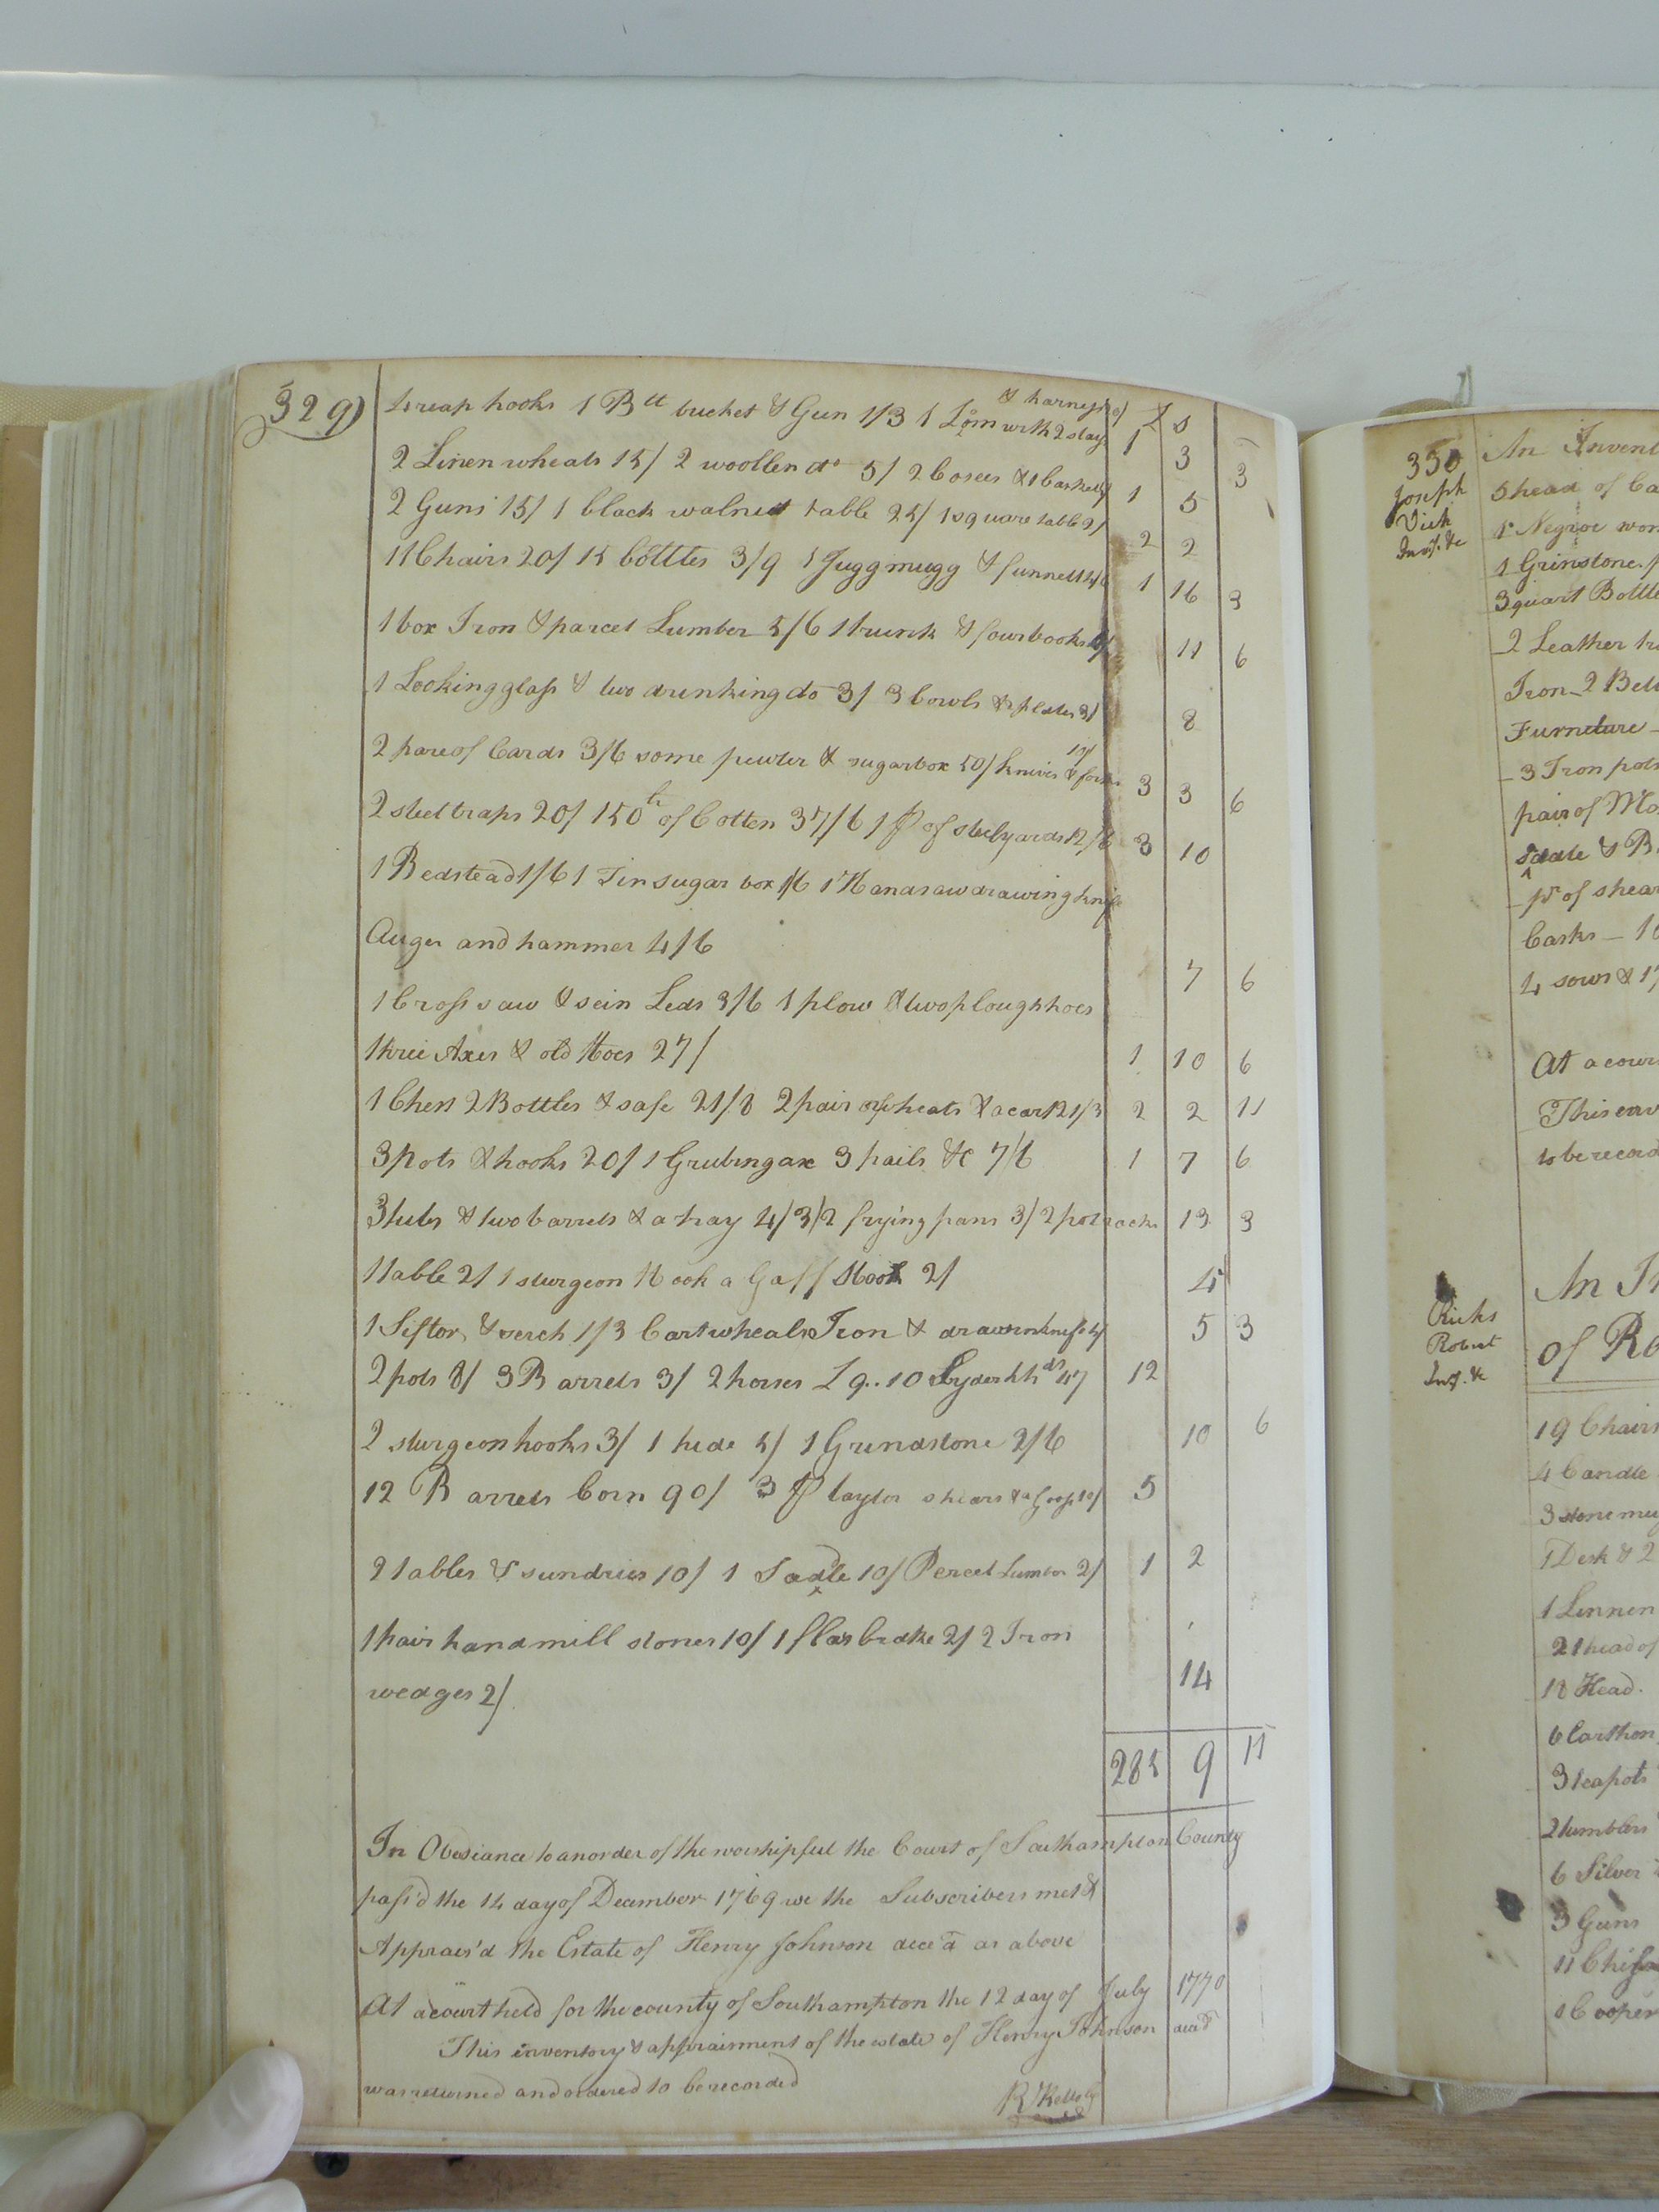 329)
& harness 20/ £ s
4 reap hooks 1 B tt bucket & Gun 1/3 1 Lom with 2 slay 1 3 3
2 Linen wheals 15/ 2 woollen do 5/ 2 boxes & 1 basket 5/ 1 5
2 Guns 15/ 1 black walnut table 25/ 1 square table 2/ 2 2
11 Chairs 20/ 15 bottles 3/9 1 Jugg mugg & funnell 1 16 3
1 box Iron & parcel Lumber 5/6 1 trunk & four books 6/ 11 6
1 Looking glass & two drinking do 3/ 3 bowls & plates 5/ 8
2 pare of Cards 3/6 some pewter & sugar box 50/ knives & forks 10/ 3 3 6
2 steel traps 20/ 150 lr of Cotten 37/6 1 P of steelyards 12/6 3 10
1 Bedstead 1/6 1 Tin sugar box 1/6 1 Handsaw drawing knife
Auger and hammer 4/6 7 6
1 Cross saw & sein Leds 3/6 1 plow & two plough hoes
three Axes & old Hoes 27/ 1 10 6
1 Chest 2 Bottles & safe 21/8 2 pair of wheals & a cart 21/3 2 2 11
3 pots & hooks 20/ 1 Grubing axe 3 pails &c 7/6 1 7 6
3 tubs & two barrels & a tray 4/3/2 frying pans 3/ 2 pot racks 13 3
1 table 2/ 1 sturgeon Hook a Gaff Hook 2/ 4
1 Siftor & serch 1/3 Cart wheals Iron & drawinknife 4/ 5 3
2 pots 8/ 3 Barrels 3/ 2 horses £ 9..10 Syder hhds 47 12
2 sturgeon hooks 3/ 1 hide 5/ 1 Grindstone 2/6 10 6
12 Barrels Corn 90/ 3 P taylor shears & a Goose 10/ 5
2 tables & sundries 10/ 1 Sadle 10/ Percel Lumber 2/ 1 2
1 pair hand mill stones 10/ 1 flax brake 2/ 2 Iron
wedges 2/ 14
285 9 11
In Obesiance to an order of the worshipfull the Court of Southampton County
pass'd the 14 day of December 1769 we the Subscribers met &
Apprais'd the Estate of Henry Johnson dece'd as above
At a court held for the county of Southampton the 12 day of July 1770
This inventory & apprairment of the estate of Henry Johnson decd
was returned and ordered to be recorded
R Kello
350
Joseph
Vick
Invy. &c
An Invent
5 head of Ca
1 Negroe wom
1 Grinstone
3 quart Bottle
2 Leather tr
Iron 2 Bell
Furneture
3 Iron pots
pair of Mo
Saddle & B
pr of shear
Casks 10
4 sows & 17
At a cour
This inv
to be record
Ricks
Robert
Invy. &c
An In
of Ro
19 Chairs
4 Candle
3 stone mug
1 Desk & 2
1 Linnen
21 head of
18 Head
6 Earthen
3 teapots
2 tumblers
6 Silver
3 Guns
11 Chis
1 Cooper